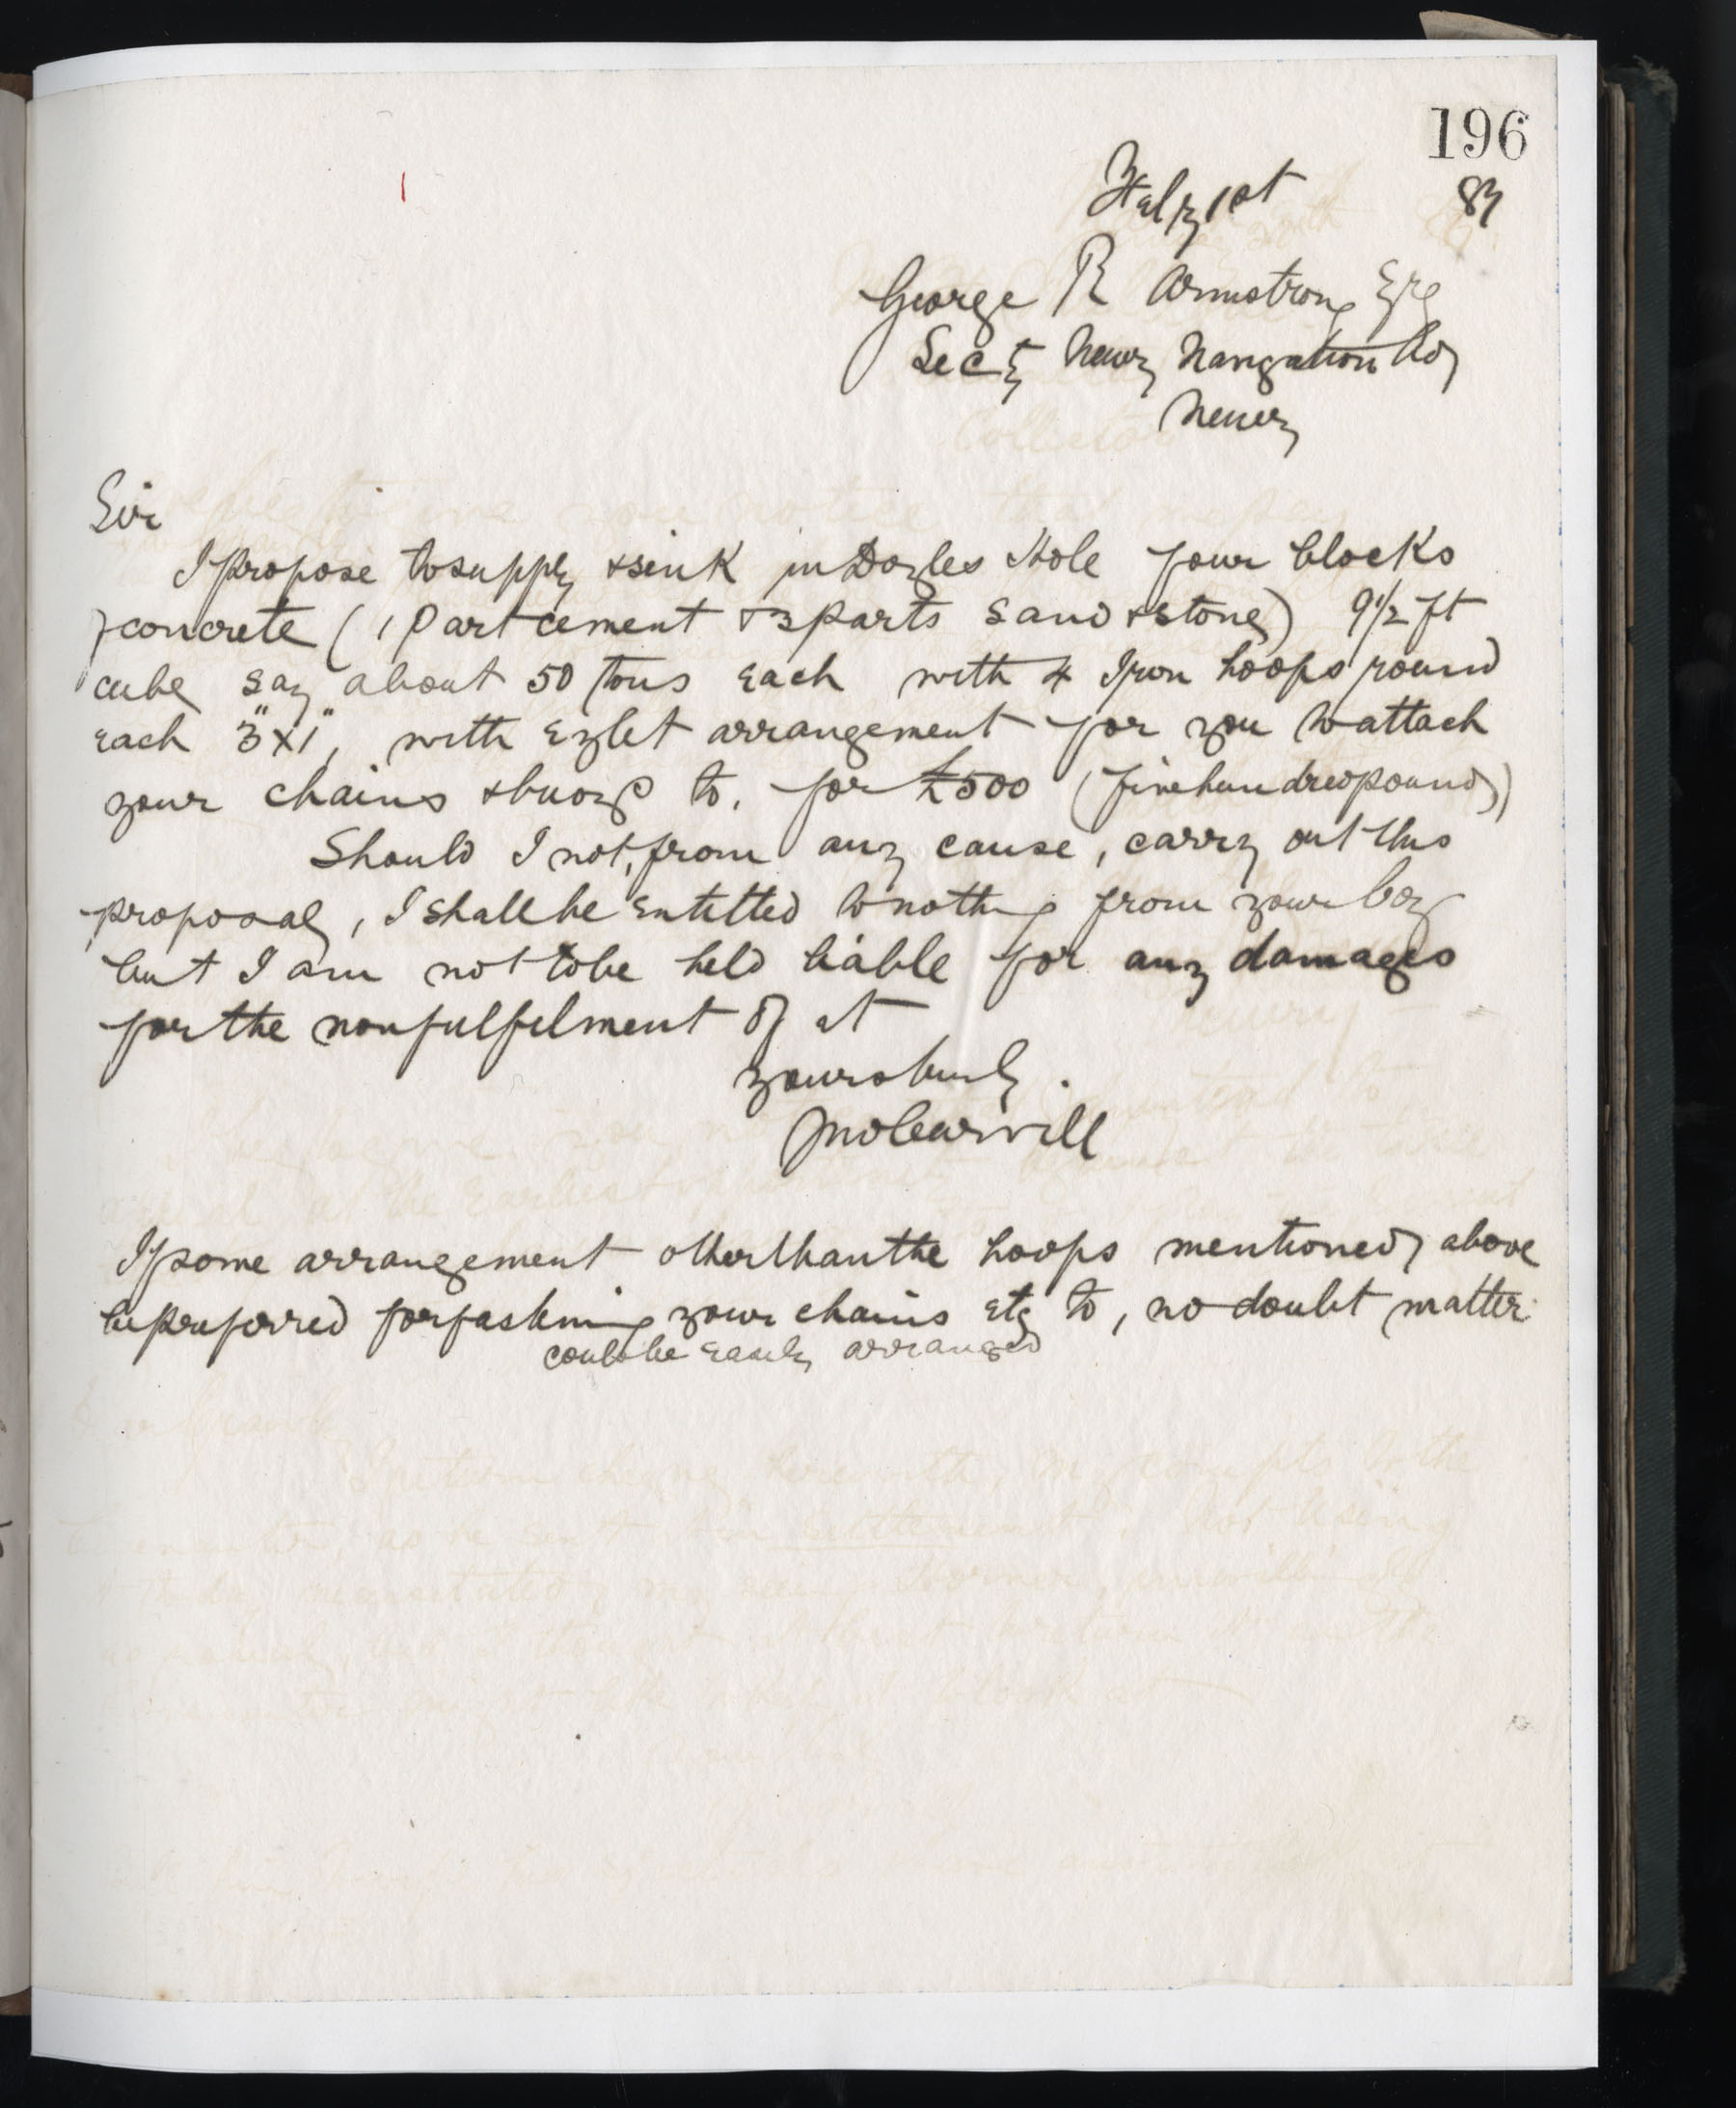 196
July 1st 87
George R Armstrong Esq
Secty Newry Navigation Coy
Newry
Sir
I propose to supply & sink in Doyles Hole four blocks
of concrete (1 part cement & 3 parts sand & stone) 9 1/2 ft
cube say about 50 tons each with 4 Iron hoops round
each 3" x 1", with Eyelet arrangement for you to attach
your chains & buoys to. for £500 (five hundred pounds)
Should I not, from any cause, carry out this
proposal, I shall be entitled to nothing from your Coy
but I am not to be held liable for any damages
for the nonfulfilment of it
yours truly.
If some arrangement other than the hoops mentioned above
be preferred for fastening your chains etc to, no doubt matter
could be easily arranged